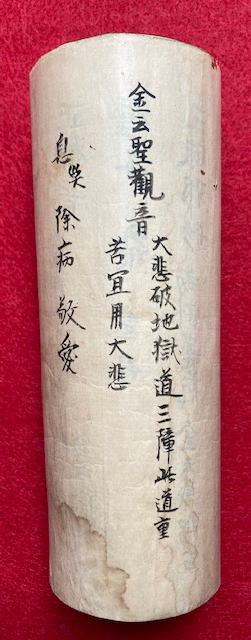 金云聖觀音
大悲破地獄道三障此道重
苦冝用大悲
息災 除病 敬愛